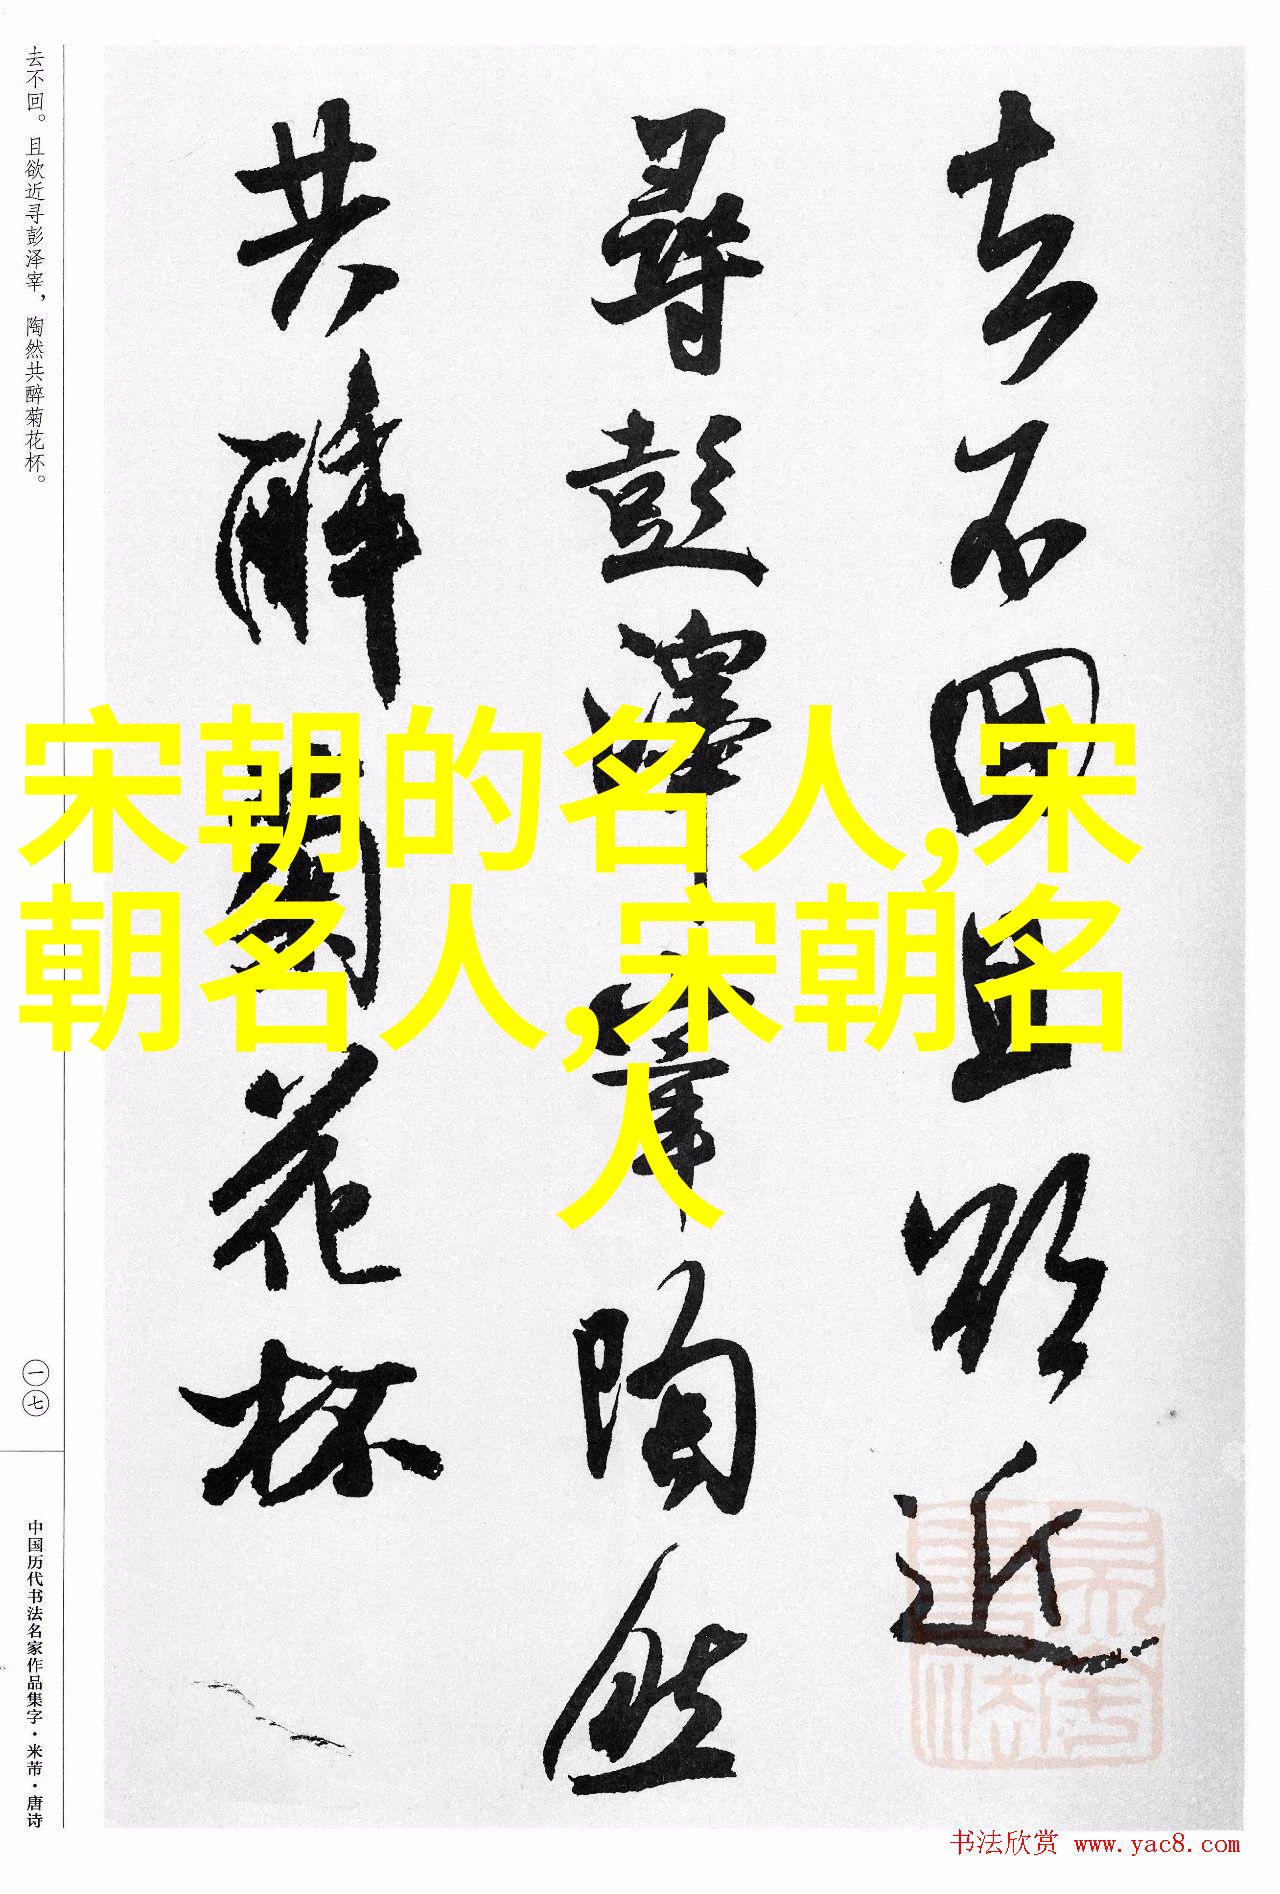 去不回且欲近
尋彭澤宰陶然
共醉菊花杯
宋朝的名人,宋
朝名人,宋朝名
人
去不回。且欲近寻彭泽宰，陶然共醉菊花杯。
一七
中国历代书法名家作品集字·米芾·唐诗
书法欣赏 www.yac8.com